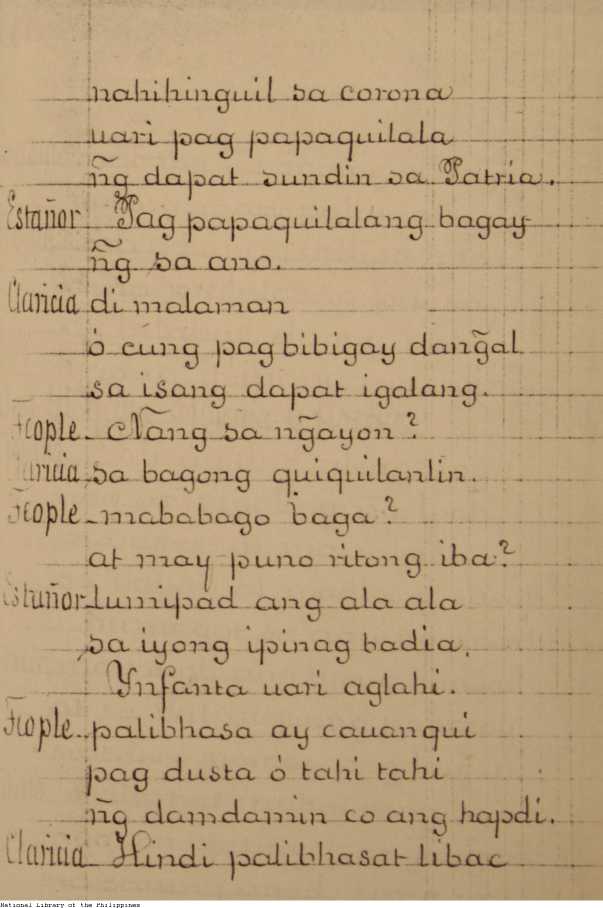 nahihinguil sa corona
uari pag papaquilala
ñg dapat sundin sa Patria.
Estañor. Pag papaquilalang bagay
ñg sa ano.
Claricia di malaman
ó cung pag bibigay dang̃al
sa isang dapat igalang.
Feople. Nang sa ng̃ayon?
Claricia sa bagong quiquilanlin.
Feople mababago baga?
at may puno ritong iba?
Estañor lumipad ang ala ala
sa iyong ipinag badia.
Ynfanta uari aglahi.
Feople. palibhasa ay cauanqui
pag dusta ó tahi tahi
ñg damdamin co ang hapdi.
Claricia Hindi palibhasat libac
National Library of the Philippines